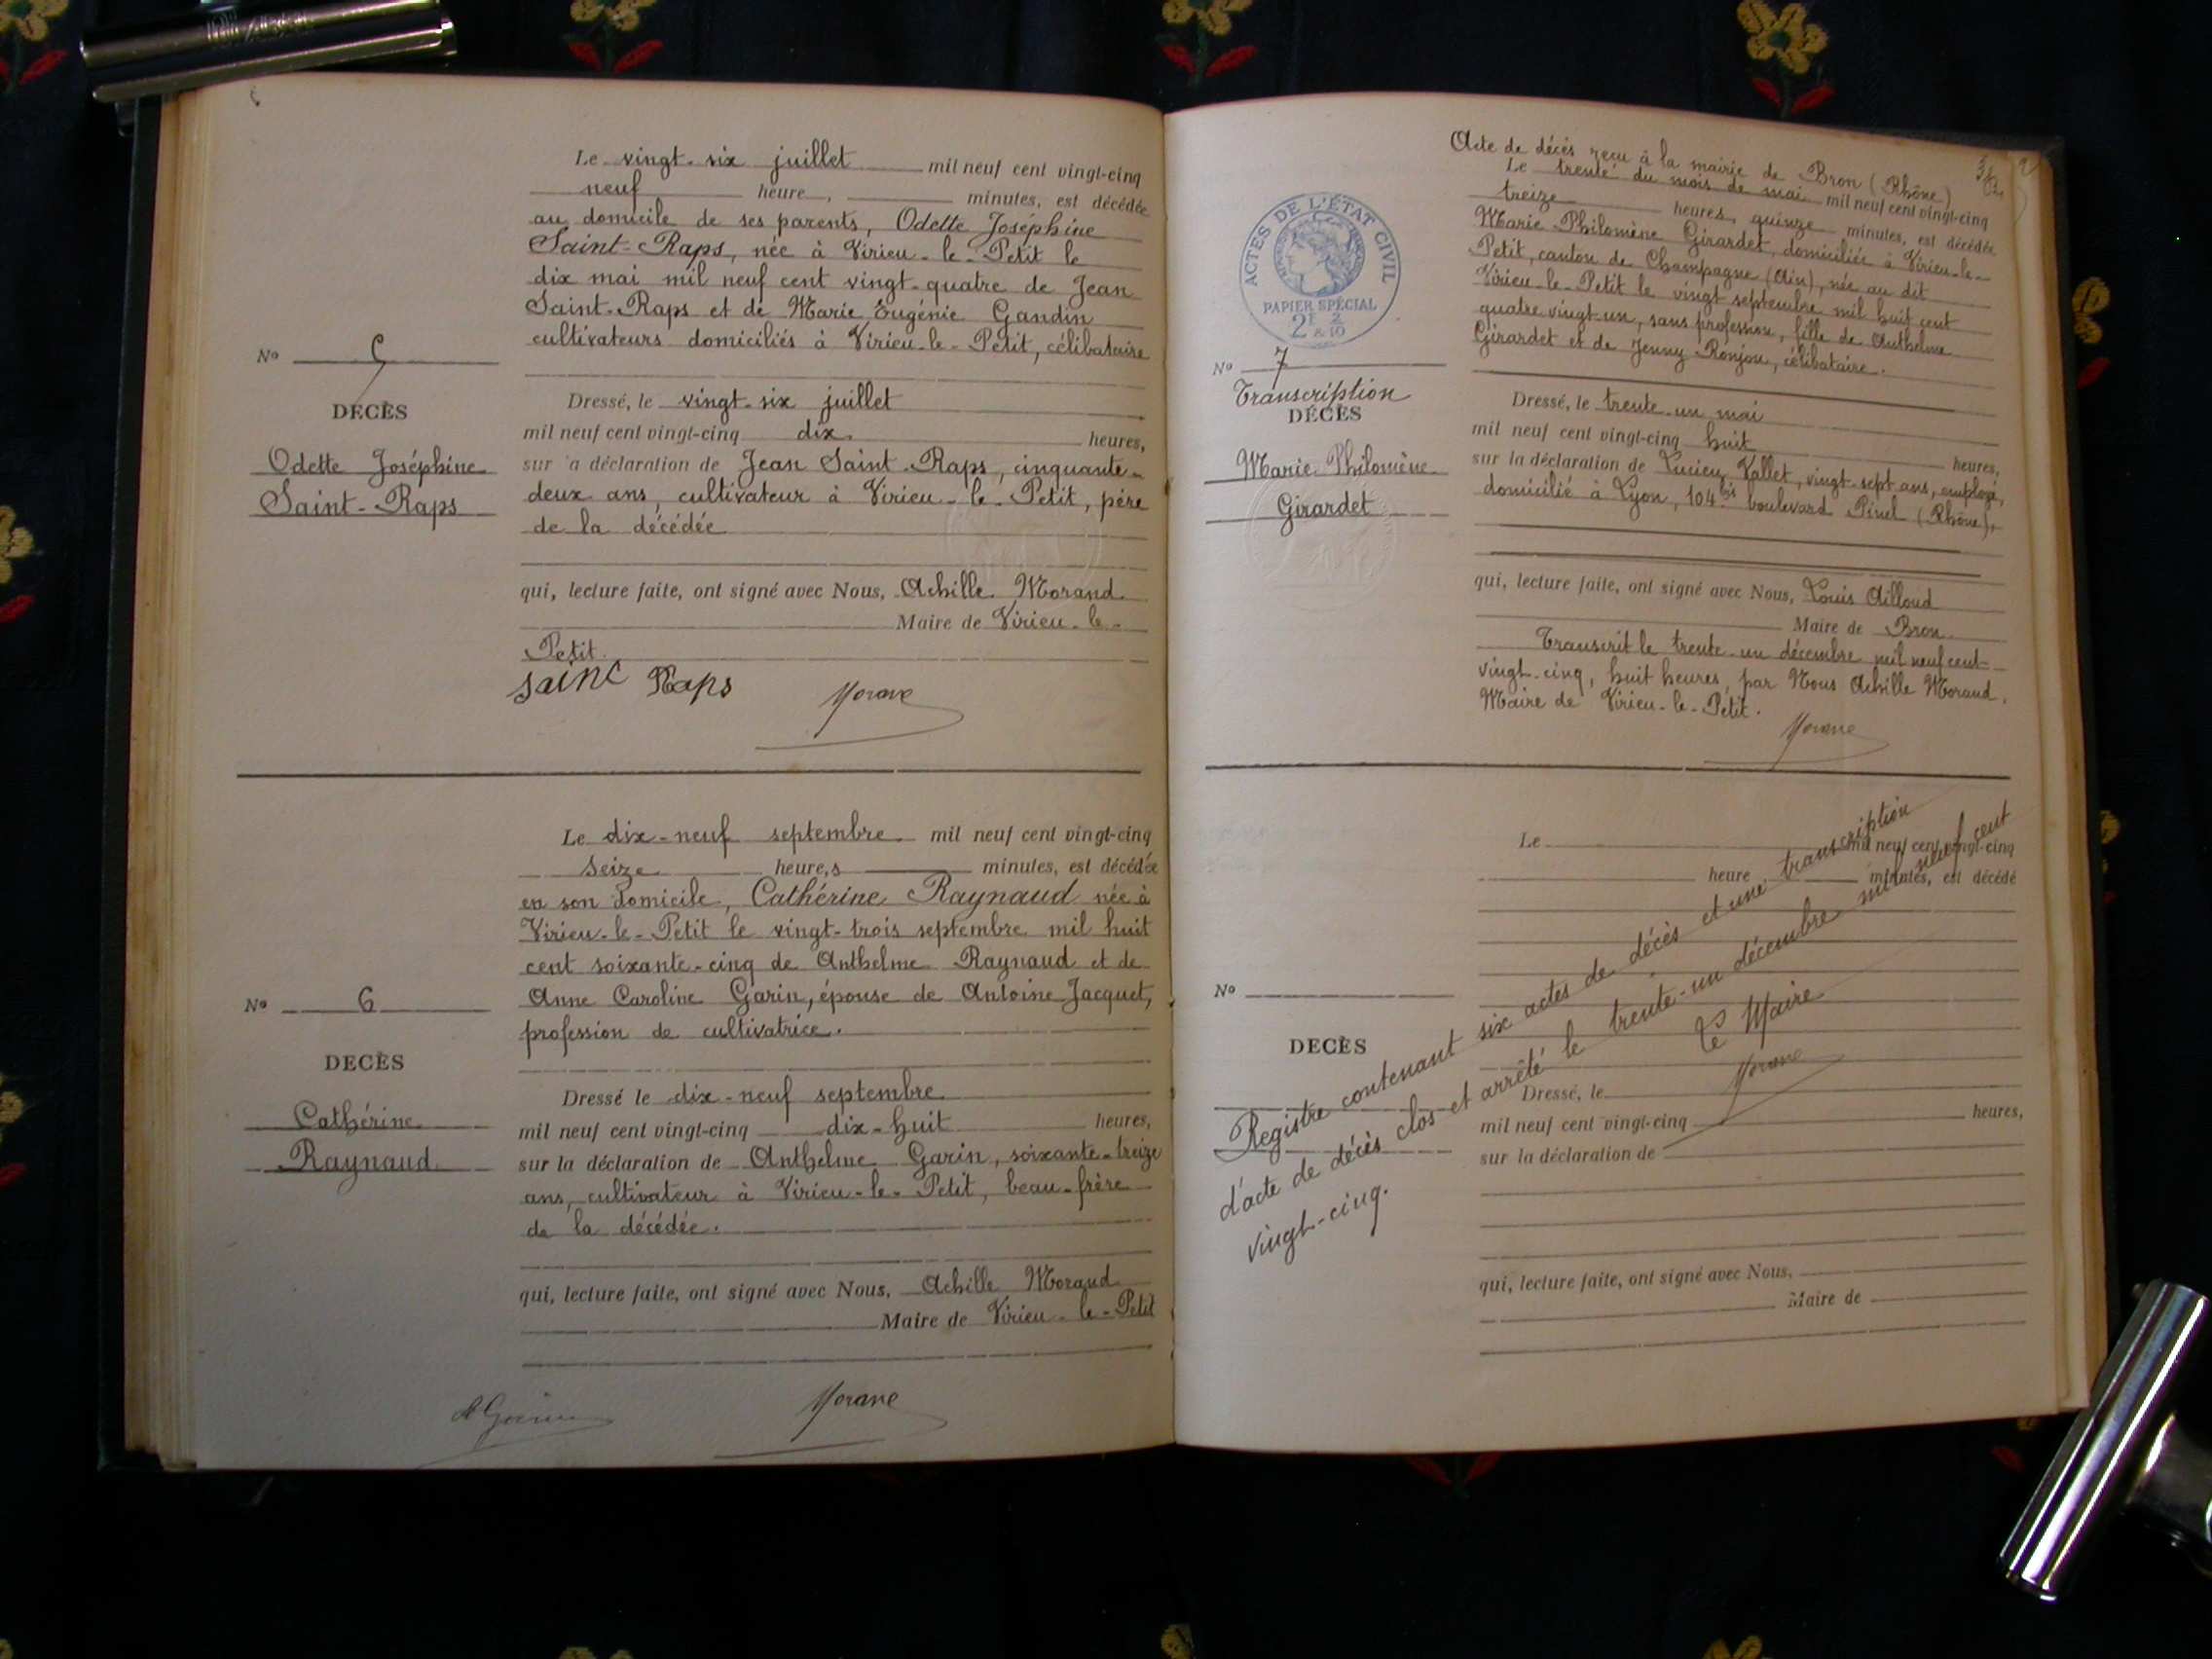 Le vingt-six juillet mil neuf cent vingt-cinq
neuf heure, minutes, est décédée
au domicile de ses parents, Odette Joséphine
Saint-Raps, née à Virieu-le-Petit le
dix mai mil neuf cent vingt-quatre de Jean
Saint-Raps et de Marie Eugénie Gandin
cultivateurs domiciliés à Virieu-le-Petit, célibataire
No 5
DECÈS
Odette Joséphine
Saint-Raps
Dressé, le vingt-six juillet
mil neuf cent vingt-cinq dix heures,
sur a déclaration de Jean Saint-Raps, cinquante-
deux ans, cultivateur à Virieu-le-Petit, père
de la décédée
qui, lecture faite, ont signé avec Nous, Achille Morand
Maire de Virieu-le-
Petit
Saint Raps Morand
Le dix-neuf septembre mil neuf cent vingt-cinq
seize heure,s minutes, est décédée
en son domicile, Cathérine Raynaud née à
Virieu-le-Petit le vingt-trois septembre mil huit
cent soixante-cinq de Anthelme Raynaud et de
Anne Caroline Garin, épouse de Antoine Jacquet,
profession de cultivatrice.
No 6
DECÈS
Cathérine
Raynaud
Dressé le dix-neuf septembre
mil neuf cent vingt-cinq dix-huit heures,
sur la déclaration de Anthelme Garin, soixante-treize
ans, cultivateur à Virieu-le-Petit, beau-frère
de la décédée.
qui, lecture faite, ont signé avec Nous, Achille Morand
Maire de Virieu-le-Petit
Morand
Acte de décès reçu à la mairie de Bron (Rhône)
Le trente du mois de mai mil neuf cent vingt-cinq
treize heures, quinze minutes, est décédée
Marie Philomène Girardet, domiciliée à Virieu-le-
Petit, canton de Champagne (Ain), née au dit
Virieu-le-Petit le vingt septembre mil huit cent
quatre vingt-un, sans profession, fille de Anthelme
Girardet et de Jenny Ronjon, célibataire.
ACTES DE L'ÉTAT CIVIL
PAPIER SPÉCIAL
2F 2
& 10
No 7
Transcription
DÉCÈS
Marie Philomène
Girardet
Dressé, le trente-un mai
mil neuf cent vingt-cinq huit heures,
sur la déclaration de Lucien Vallet, vingt-sept ans, employé,
domicilié à Lyon, 104 bis boulevard Pinel (Rhône),
qui, lecture faite, ont signé avec Nous, Louis Ailloud
Maire de Bron
Transcrit le trente-un décembre mil neuf cent-
vingt-cinq, huit heures, par Nous Achille Morand,
Maire de Virieu-le-Petit.
Morand
Le mil neuf cent vingt-cinq
heure minutes, est décédé
No
DECÈS
Registre contenant six actes de décès et une transcription
d'acte de décès clos et arrêté le trente-un décembre mil neuf cent
vingt-cinq.
Le Maire
Morand
Dressé, le
mil neuf cent vingt-cinq heures,
sur la déclaration de
qui, lecture faite, ont signé avec Nous,
Maire de